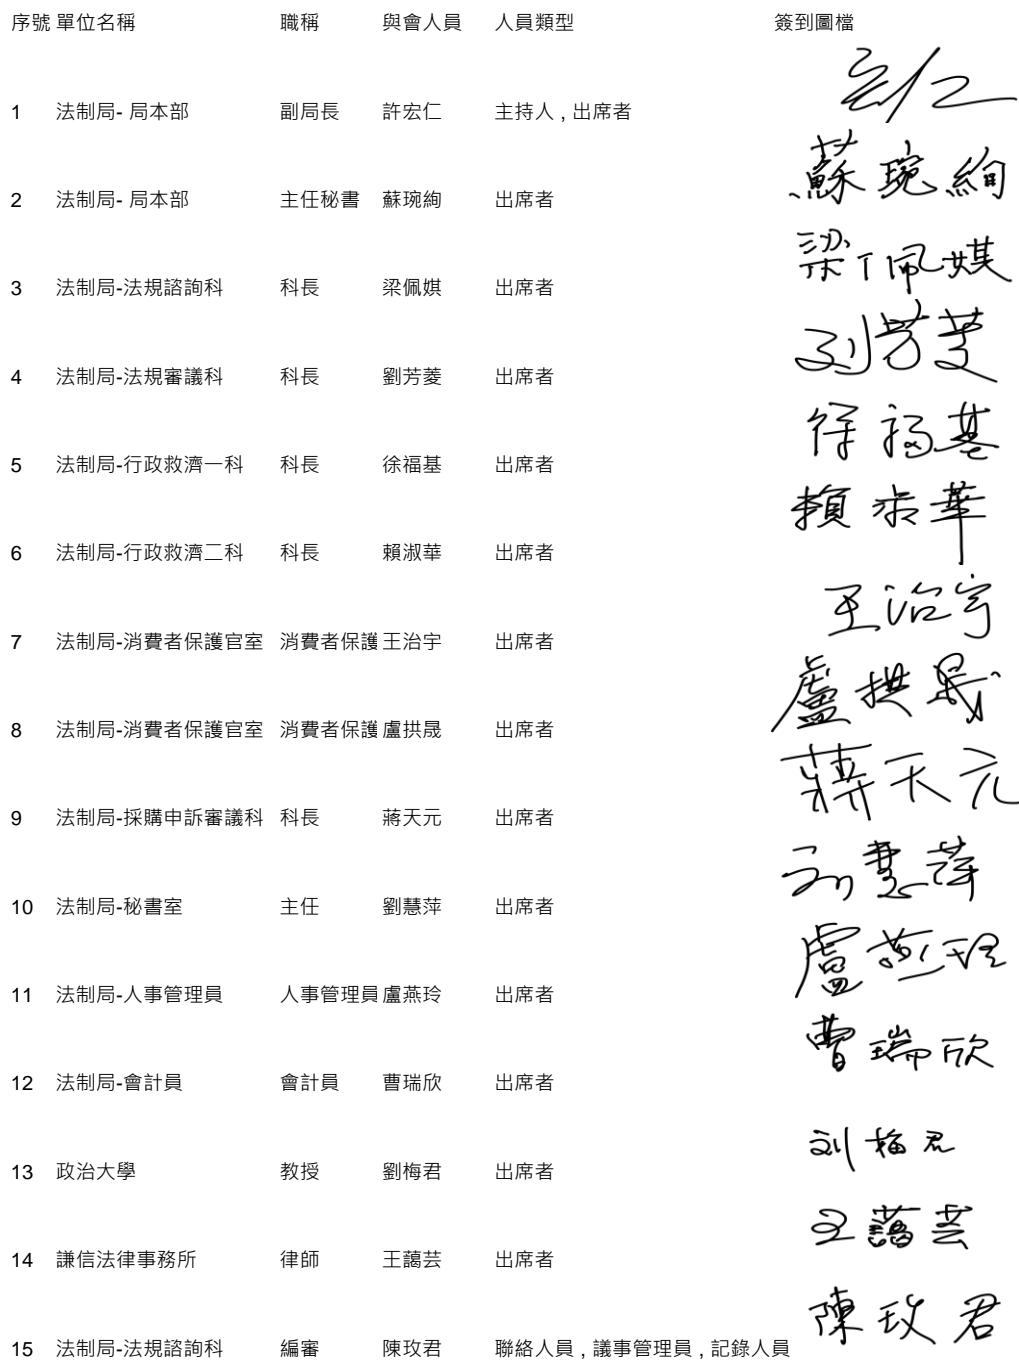 序號 單位名稱 職稱 與會人員 人員類型 簽到圖檔
宏仁
1 法制局- 局本部 副局長 許宏仁 主持人 , 出席者
蘇琬絢
2 法制局- 局本部 主任秘書 蘇琬絢 出席者
梁佩娸
3 法制局-法規諮詢科 科長 梁佩娸 出席者
刘芳菱
4 法制局-法規審議科 科長 劉芳菱 出席者
徐福基
5 法制局-行政救濟一科 科長 徐福基 出席者
賴淑華
6 法制局-行政救濟二科 科長 賴淑華 出席者
王治宇
7 法制局-消費者保護官室 消費者保護 王治宇 出席者
盧拱晟
8 法制局-消費者保護官室 消費者保護 盧拱晟 出席者
蔣天元
9 法制局-採購申訴審議科 科長 蔣天元 出席者
刘慧萍
10 法制局-秘書室 主任 劉慧萍 出席者
盧燕玲
11 法制局-人事管理員 人事管理員 盧燕玲 出席者
曹瑞欣
12 法制局-會計員 會計員 曹瑞欣 出席者
刘梅君
13 政治大學 教授 劉梅君 出席者
王藹芸
14 謙信法律事務所 律師 王藹芸 出席者
陳玫君
15 法制局-法規諮詢科 編審 陳玫君 聯絡人員 , 議事管理員 , 記錄人員